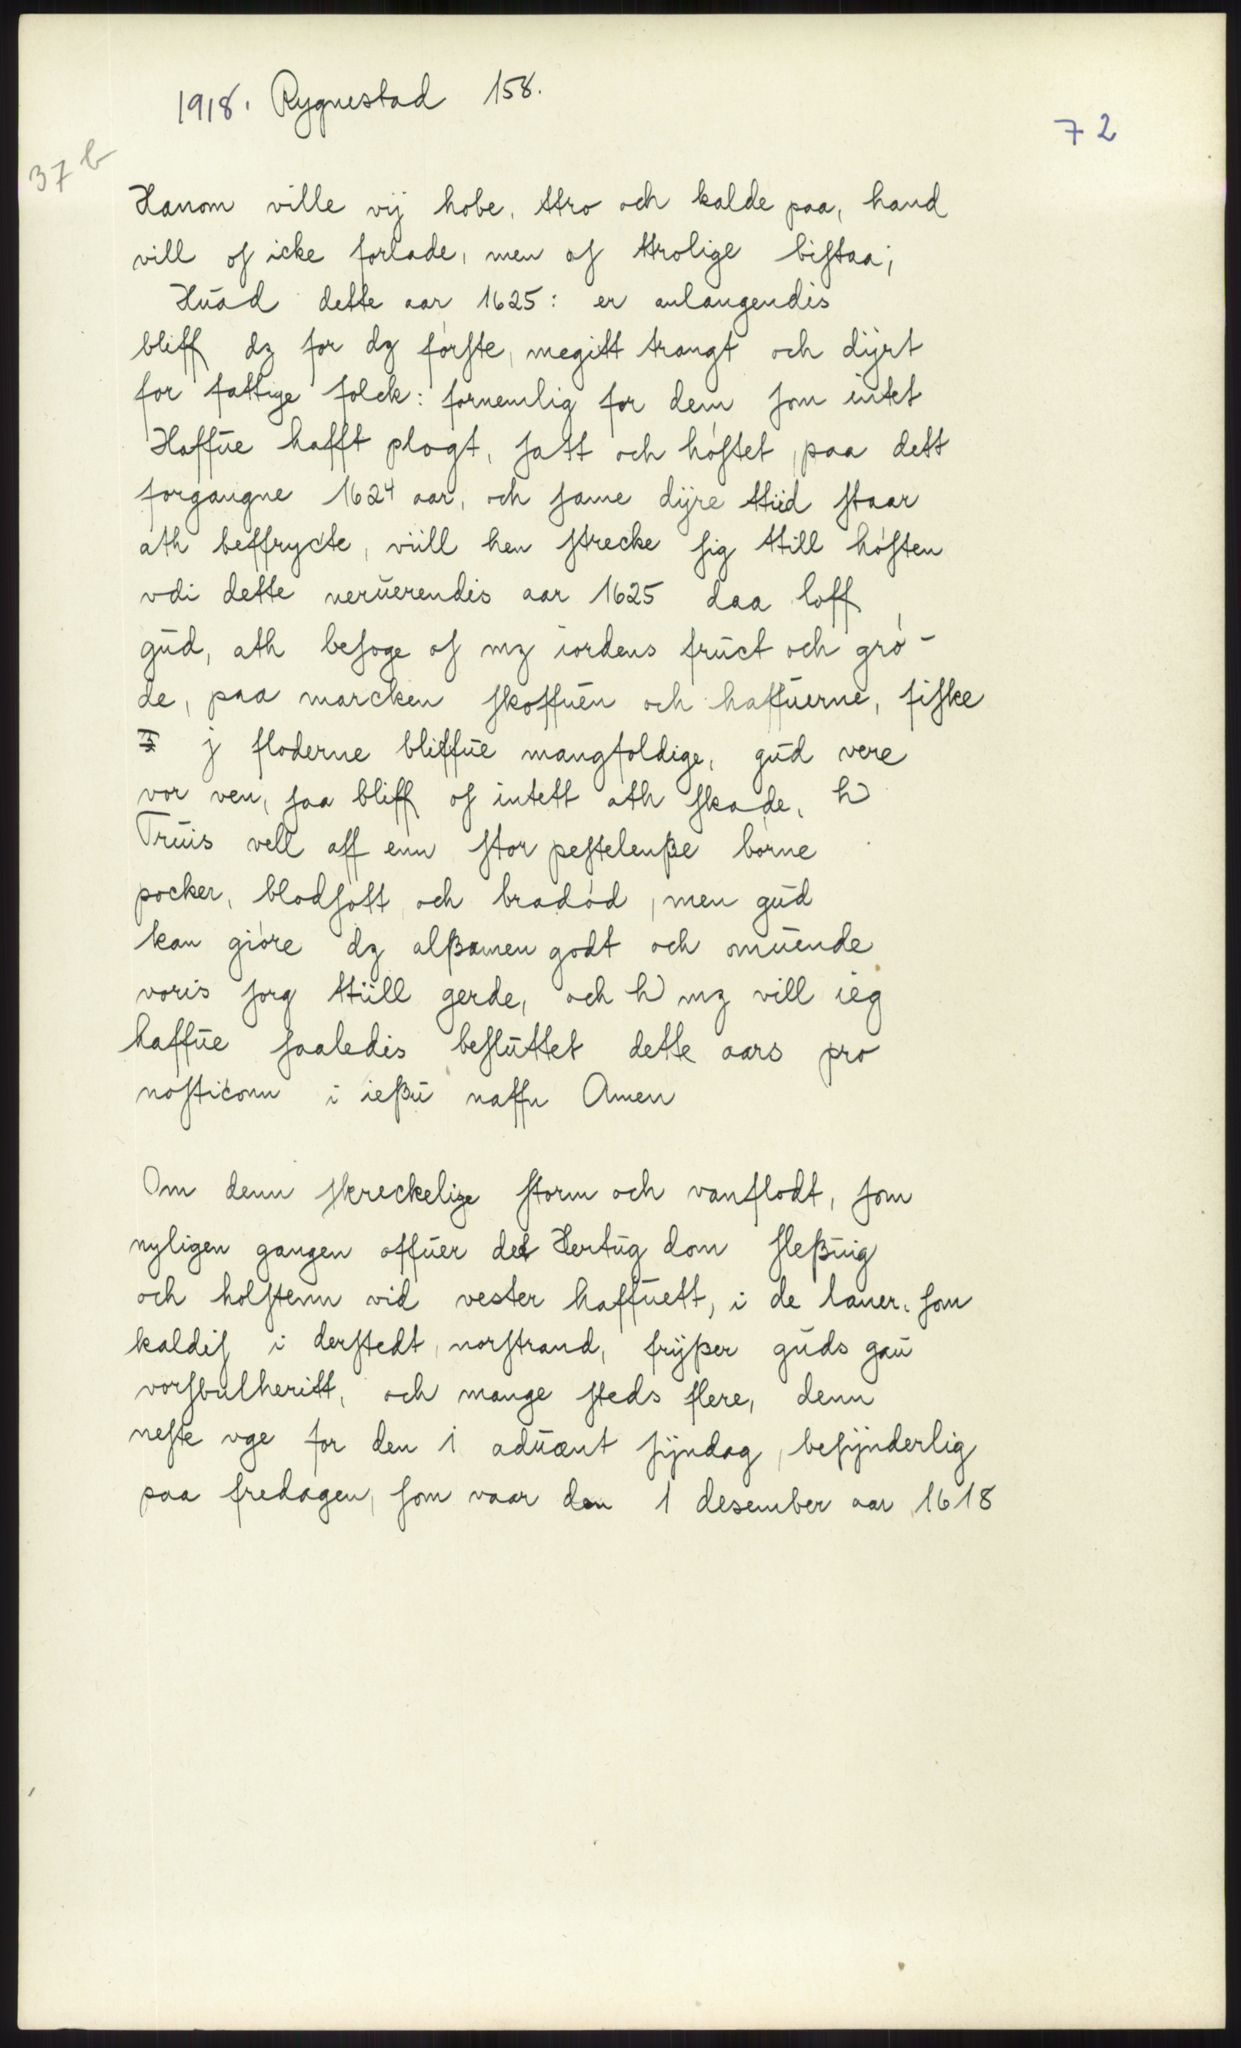 1918. Rygnestad 158.
72
37 b
Hanom ville vij hobe, ttro och kalde paa, hand
vill oſ icke forlade, men oſ ttrolige biſtaa;
Huad dette aar 1625: er anlangendis
bliff dz for dz förſte, megitt trangt och dÿrt
for fattige folck: fornemlig for dem ſom intet
Haffue hafft plogt, ſatt och höſtet, paa dett
forgangne 1624 aar, och ſame dÿre ttiid ſtaar
ath beffrycte, viill hen ſtrecke ſig ttill höſten
vdi dette neruerendis aar 1625 daa loff
gud, ath beſoge oſ mz iordens fruct och grö-
de, paa marcken ſkoffuen och haffuerne, fiſke
j floderne bliffue mangfoldige, gud vere
vor ven, ſaa bliff oſ intett ath ſkade, h
Truis vell aff enn ſtor peſtelenße börne
pocker, blodſott och bradöd, men gud
kan giöre dz alßamen godt och omuende
voris ſorg ttiill gerde, och h mz vill ieg
haffue ſaaledis beſluttet dette aars pro
noſticonn i ießu naffn Amen
Om denn ſkreckelige ſtorm och vanflodt, ſom
nyligen gangen offuer det Hertug dom ſleßuig
och holſtenn vid veſter haffuett, i de laner, ſom
kaldiſ i derſtedt, norſtrand, frÿßer guds gau
vorſbulheritt, och mange ſteds flere, denn
neſte vge for den 1 aduænt ſÿndag, beſÿnderlig
paa fredagen, ſom vaar den 1 desember aar 1618